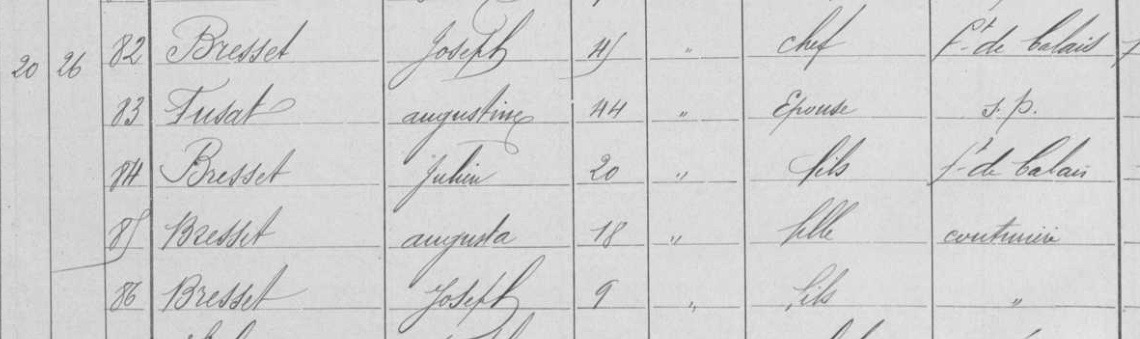 20 26 82 Bresset Joseph 45 " chef ft de balais
83 Fusat augustine 44 " Epouse s. p.
84 Bresset Julien 20 " fils ft de balais
85 Bresset augusta 18 " fille couturière
86 Bresset Joseph 9 " fils "